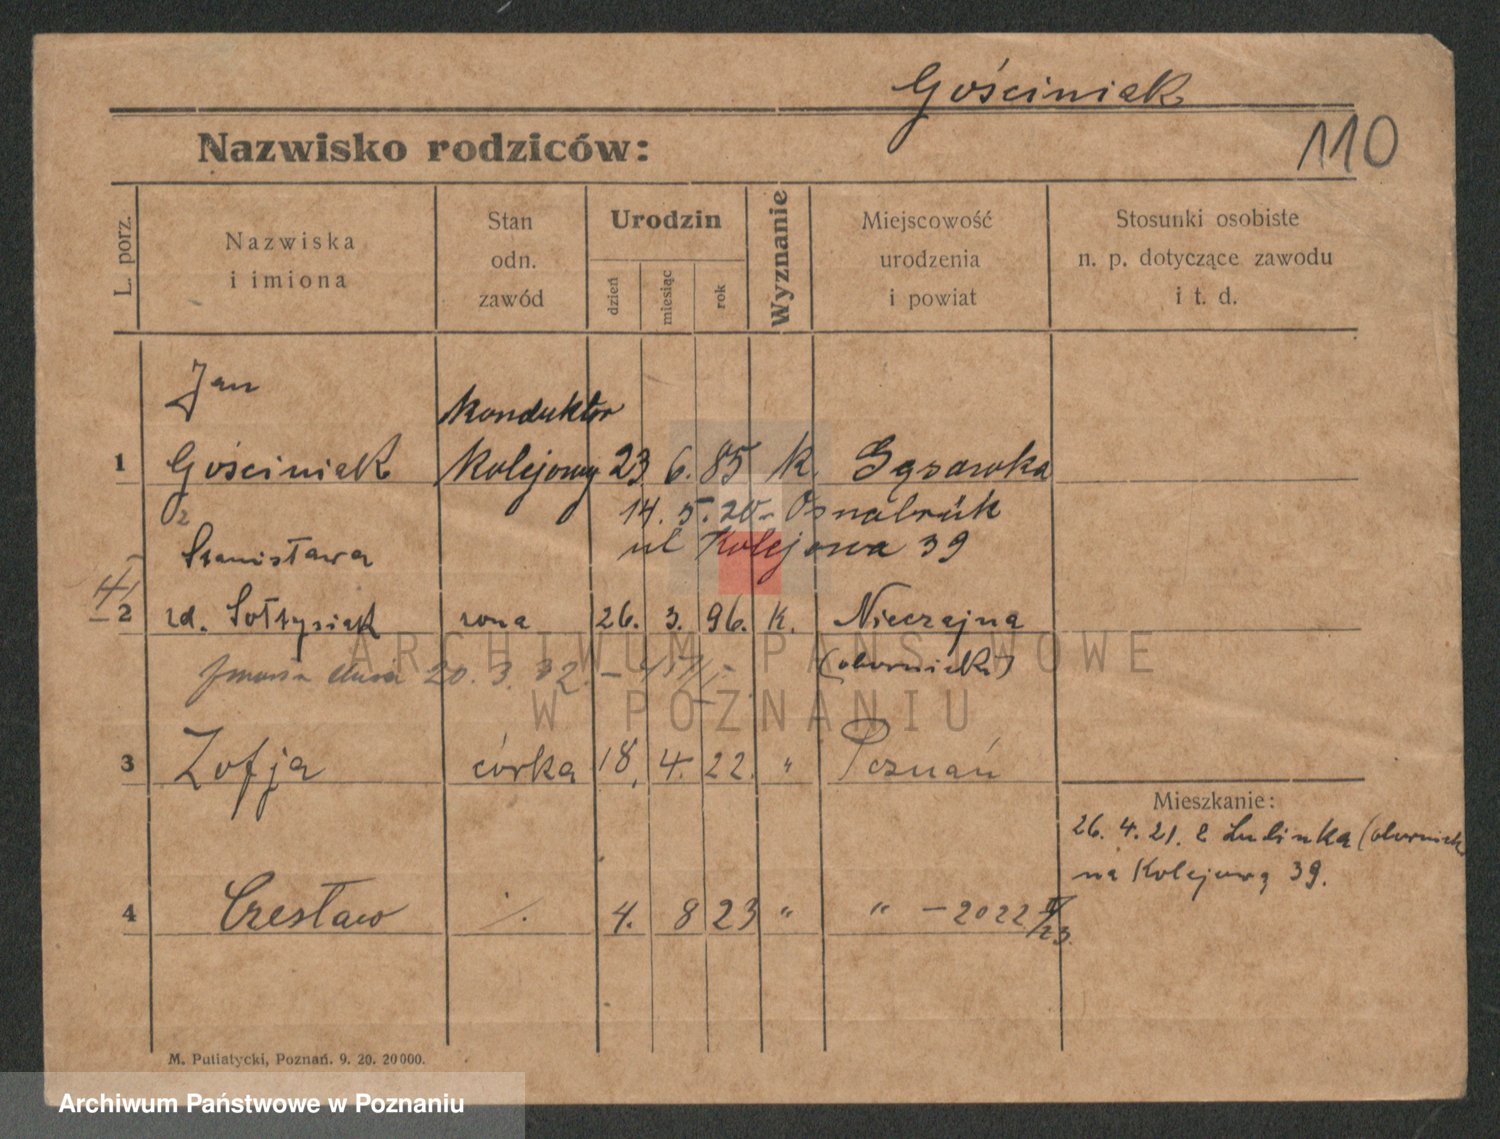 Gościniak
110
Nazwisko rodziców:
L. porz.
Nazwiska
i imiona
Stan
odn.
zawód
Urodzin
dzień
miesiąc
rok
Wyznanie
Miejscowość
urodzenia
i powiat
Stosunki osobiste
n. p. dotyczące zawodu
i t. d.
Jan
konduktor
1 Gościniak kolejowy 23 6. 85 k. Gąsawka
14. 5. 20 - Osnabrük
Stanisława ul Kolejowa 39
2 zd. Sołtysiak żona 26. 3. 96. k. Nieczajna
zmarła dnia 20. 3. 32. (obornicki)
3 Zofja córka 18. 4. 22. " Poznań
Mieszkanie:
26. 4. 21. z Lulinka (obornick
na Kolejową 39.
4 Czesław ·/. 4. 8 23 " " - 2022
M. Putiatycki, Poznań. 9. 20. 20000.
ARCHIWUM PAŃSTWOWE
W POZNANIU
Archiwum Państwowe w Poznaniu